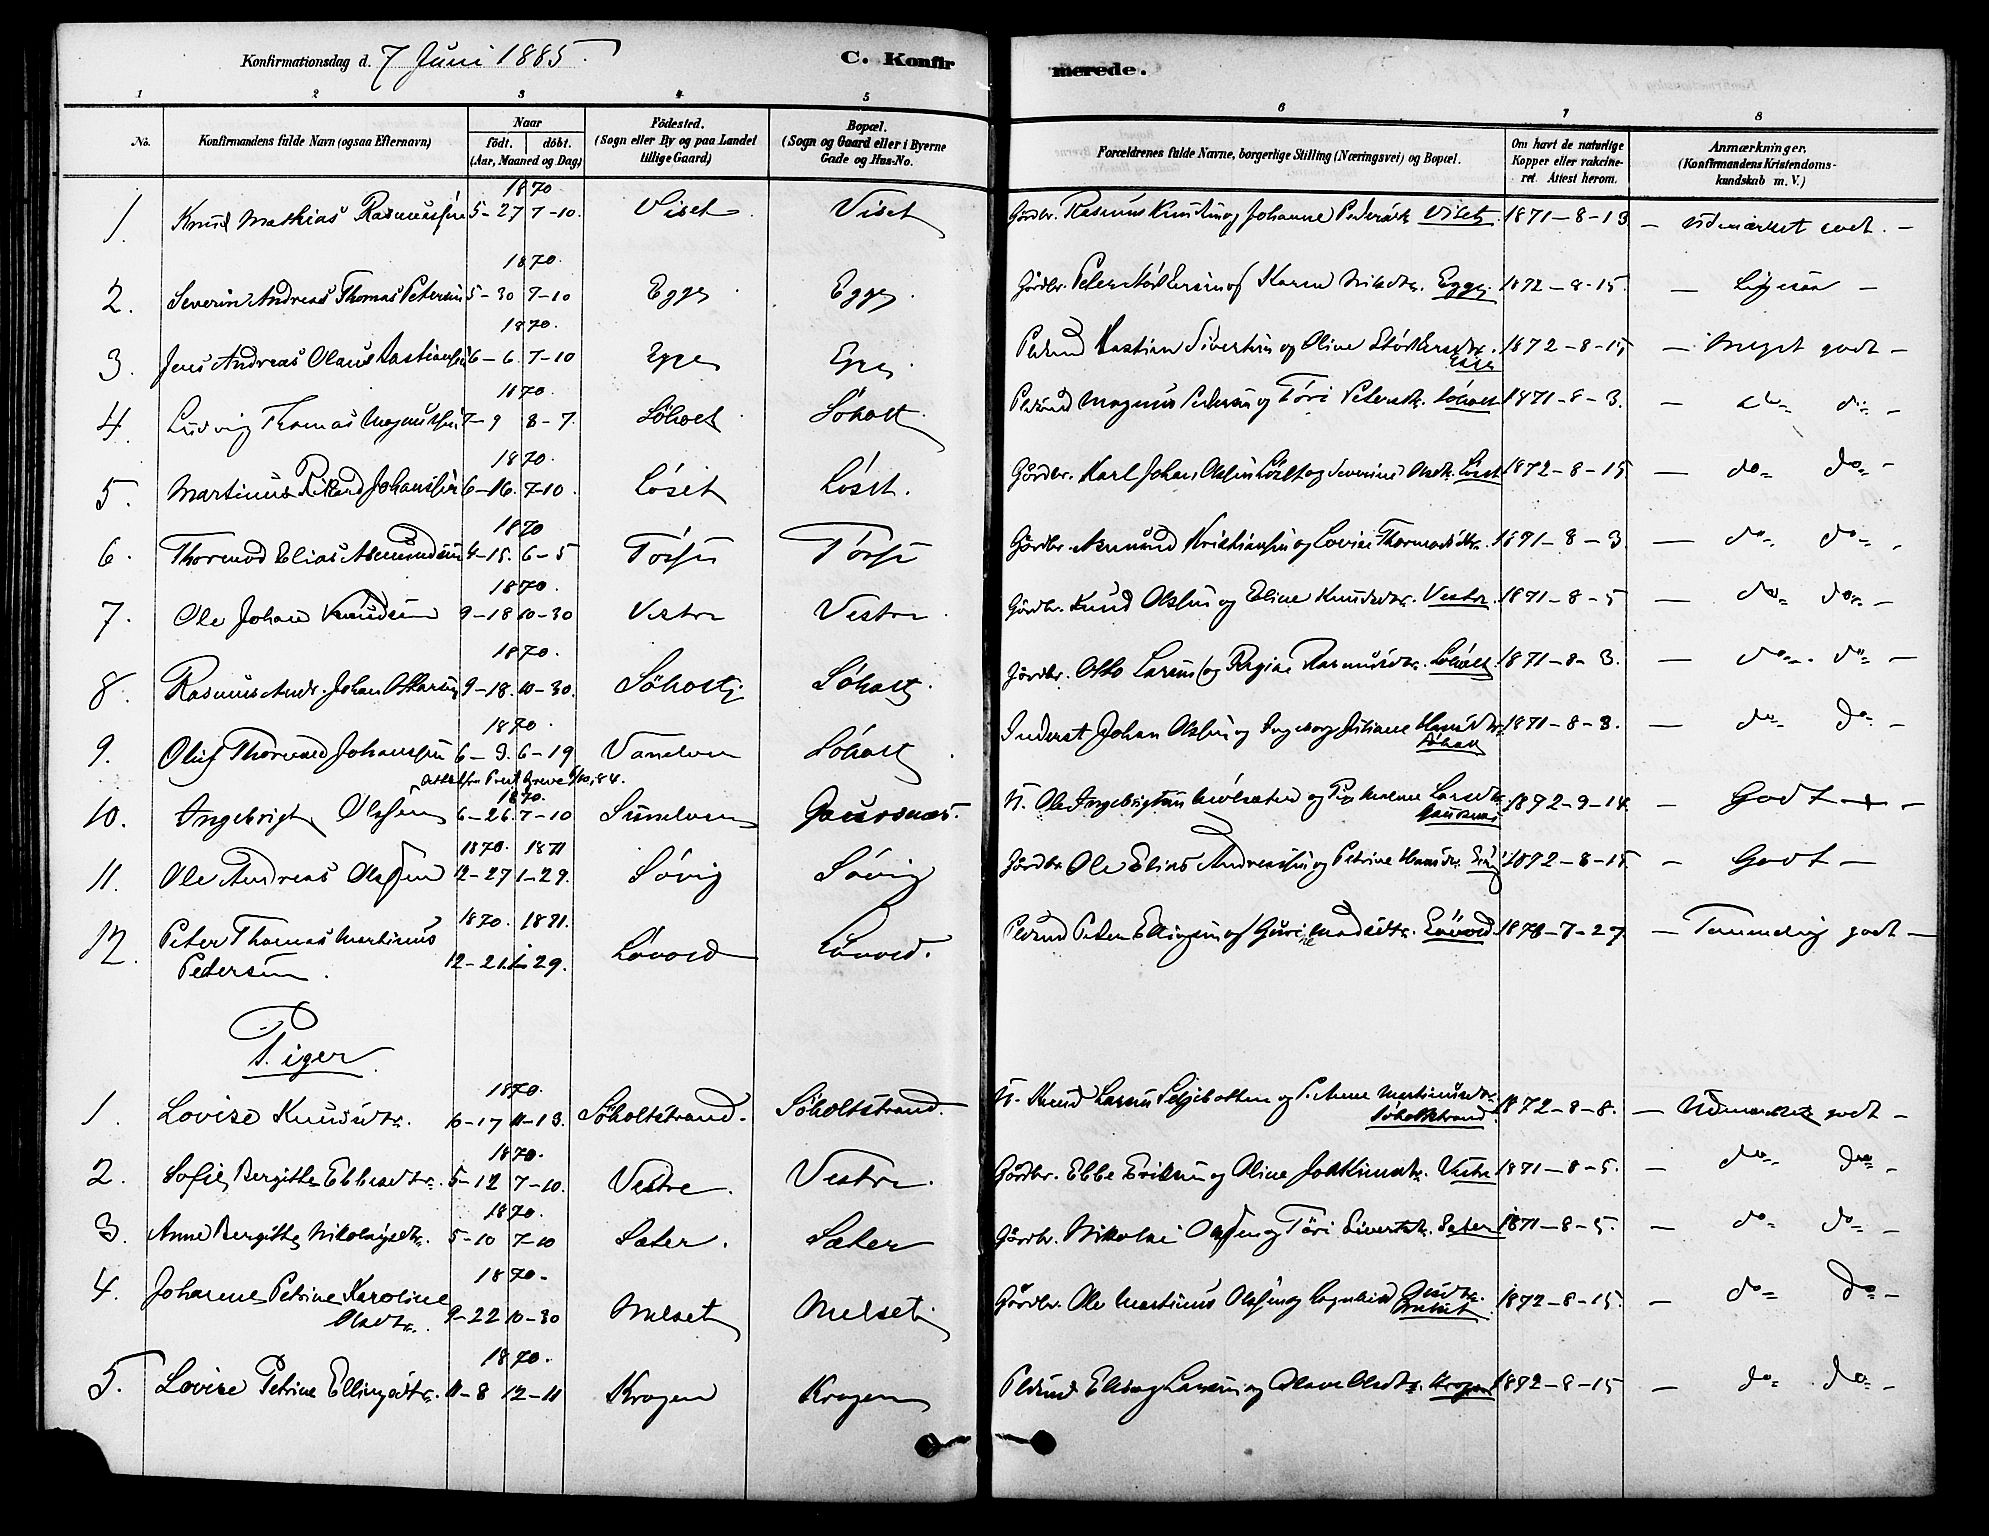 Konfirmationsdag d. 7 Juni 1885. C. Konfirmerede.
1 2 3 4 5 6 7 8
No. Konfirmandens fulde Navn (ogsaa Efternavn) Naar födt. döbt. (Aar, Maaned og Dag) Födested. (Sogn eller By og paa Landet tillige Gaard) Bopæl. (Sogn og Gaard eller i Byerne Gade og Hus-No. Forældrenes fulde Navne, borgerlige Stilling (Næringsvei) og Bopæl. Om havt de naturlige Kopper eller vakcineret. Attest herom. Anmærkninger. (Konfirmandens Kristendomskundskab m. V.)
1870
1. Knud Mathias Rasmussen 5-27 7-10. Viset Viset Gårdbr. Rasmus Knudsen og Johanne Pedersdtr. Viset 1871-8-13 - Udmærket godt. -
1870.
2. Severin Andreas Thomas Petersen 5-30 7-10 Egge Egge. Gårdbr. Peter og Karen Egge. 1872-8-15. - Ligesaa -
1870.
3. Jens Andreas Olaus Bastiansen 6-6. 7-10 Egge Egge. Bastian Sivertsen og Oline Egge 1872-8-15 - Meget godt -
1870.
4. Ludvig Thomas Magnussen 7-9 8-7. Søholt Søholt. Magnus Pedersen og Töri Petersdtr. Søholt 1871-8-3. - do. do. -
1870.
5. Martinus Rikard Johanssen 6-16. 7-10. Løset Løset. Gårdbr. Karl Johan Olsen Løset og Severine Olsdtr. Løset 1872-8-15. - do. do. -
1870
6. Thormod Elias Asmundsen 4-15. 6-5 Gårdbr. Asmund Kristiansen og Lovise Thormodsdtr. 1871-8-3. - do. do. -
1870.
7. Ole Johan Knudsen 9-18 10-30 Vestre Vestre. Gårdbr. Knud Olsen og Eline Knudsdtr. Vestre. 1871-8-5 - do. do. -
1870.
8. Rasmus Andr. Johan Ottosen 9-18. 10-30. Søholt Søholt. Gårdbr. Otto Larsen og Regine Rasmusdtr. Søholt 1871-8-3. - do. do. -
1870.
9. Oluf Thorvald Johanssen 6-3. 6-19 Vanelven Søholt. Inderst Johan Olsen og Ingeborg Juliane Hansdtr. Søholt 1871-8-3. - do. do. -
1870.
10. Ingebrigt Olsen 6-26. 7-10 Sunelven Gausnæs. Ole Ingebrigtsen og Larsdtr. Gausnæs 1872-9-14. - Godt -
1870. 1871
11. Ole Andreas Olsen 12-27 1-29. Søvig Søvig Gårdbr. Ole Elias Andreassen og Petrine Hansdtr. Søvig 1872-8-15. - Godt -
1870. 1871.
12. Peter Thomas Martinus
Petersen 12-21. 1-29. Løvold Løvold. Peter Ellingsen og Gurine Madsdtr. Løvold 1873-7-27 - Temmelig godt -
Piger
1870.
1. Lovise Knudsdtr. 10-17 11-13. Søholtstrand. Søholtstrand. Knud Larsen og Martinusdtr. Søholtstrand. 1872-8-8. - Udmærket godt -
1870.
2. Sofie Bergitte Ebbesdtr. 5-12 7-10. Vestre. Vestre. Gårdbr. Ebbe Eriksen og Oline Vestre 1871-8-5. - do. do. -
1870.
3. Anne Bergitte Nikolaysdtr. 5-10 7-10 Sæter. Sæter Gårdbr. Nikolai Olsen og Töri Sivertsdtr. Sæter 1871-8-5. - do. do. -
1870.
4. Johanne Petrine Karoline
Olsdtr. 9-22 10-30 Melset Melset. Gårdbr. Ole Martinus Olsen og Melset 1872-8-15. - do. do. -
1870.
5. Lovise Petrine Ellingsdtr. 11-8 12-11 Krogen Krogen Elling Larsen og Olave Olsdtr. Krogen 1872-8-15 - do. do. -